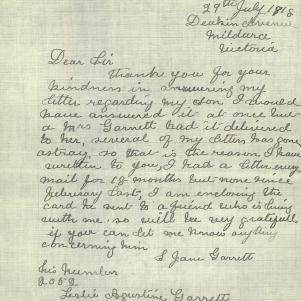 29th July 1918
Deakin Avenue
Mildura
Victoria
Dear Sir
Thank you for your
kindness in answering my
letter regarding my son I would
have answered it at once but
a Mrs Garnett had it delivered
to her, several of my letters has gone
astray, so that is the reason I have
written to you, I had a letter every
mail for 18 months but none since
February last, I am enclosing the
card he sent to a friend who is living
with me, so will be very grateful
if you can let me know anything
concerning him
S Jane Garrett
his number
2052
Leslie Agustine Garrett